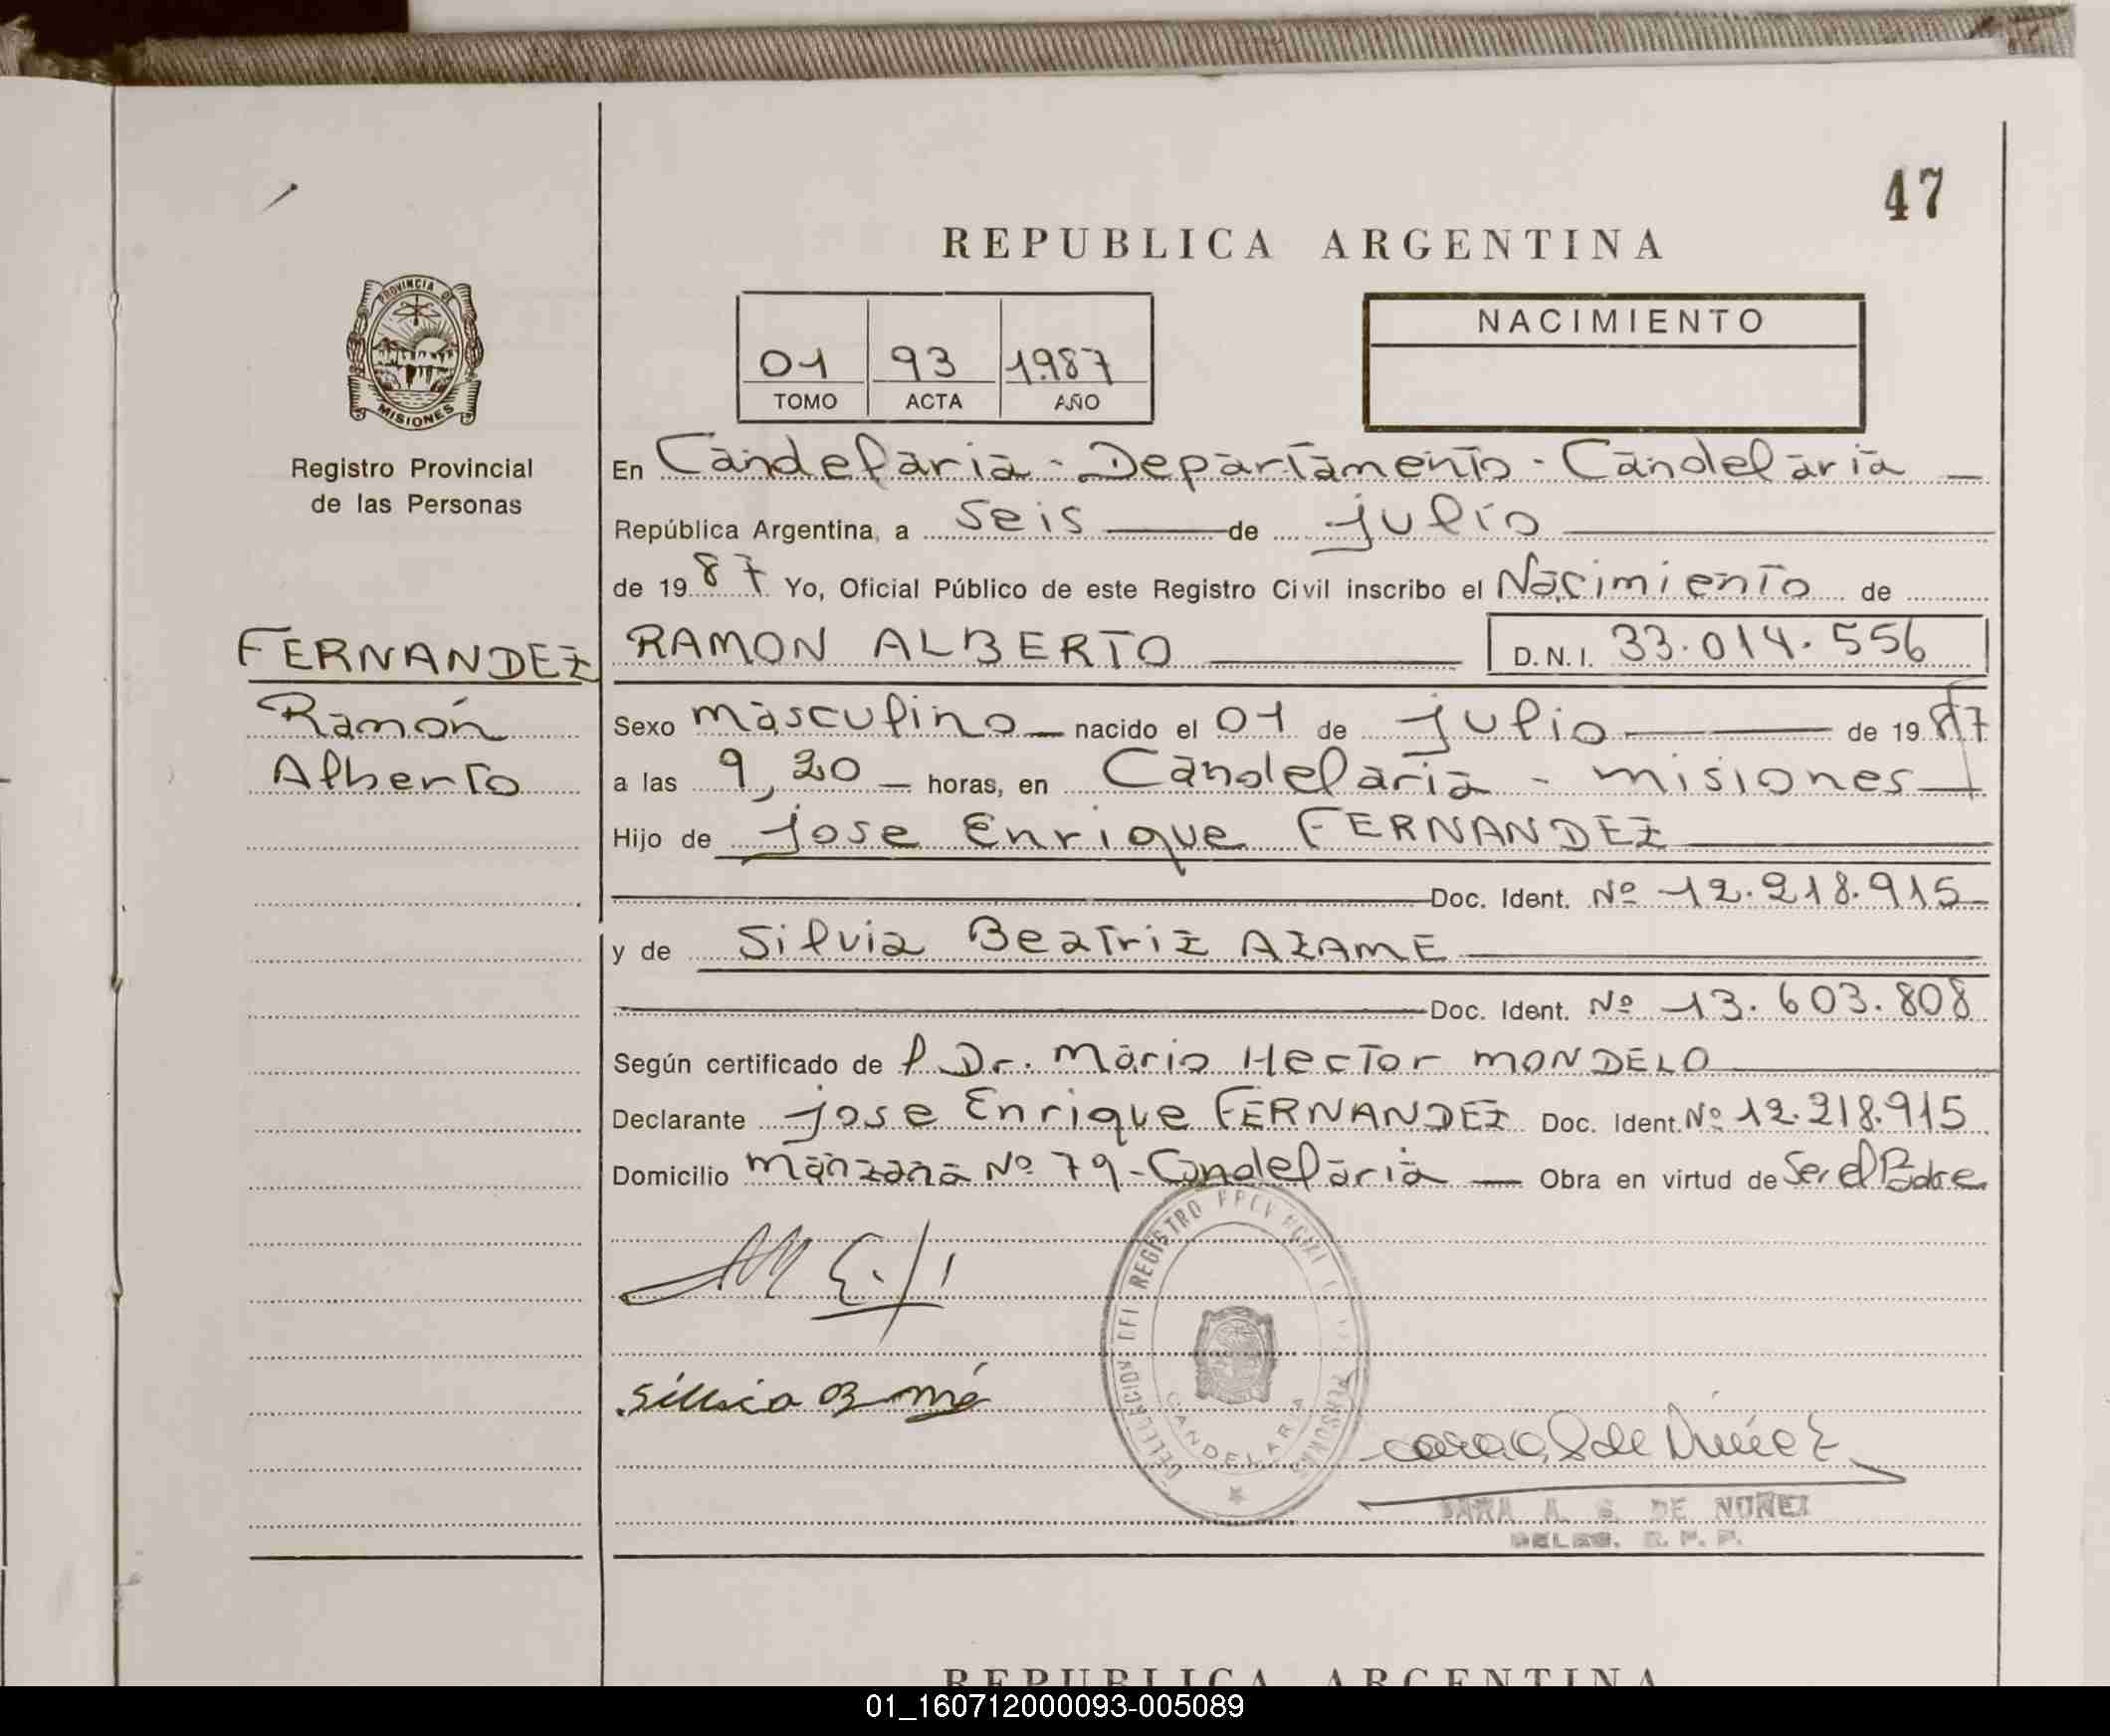 47
REPUBLICA ARGENTINA
PROVINCIA DE
MISIONES
Registro Provincial
de las Personas
01 93 1987
TOMO ACTA AÑO
NACIMIENTO
En Candelaria - Departamento - Candelaria
República Argentina, a seis de julio
de 1987 Yo, Oficial Público de este Registro Civil inscribo el Nacimiento de
FERNANDEZ RAMON ALBERTO D.N.I. 33.014.556
Ramón
Alberto
Sexo masculino nacido el 01 de julio de 1987
a las 9,20 horas, en Candelaria - misiones
Hijo de jose Enrique FERNANDEZ
Doc. Ident. Nº 12.218.915
y de Silvia Beatriz AZAME
Doc. Ident. Nº 13.603.808
Según certificado de l Dr. Mario Hector MONDELO
Declarante jose Enrique FERNANDEZ Doc. Ident. Nº 12.218.915
Domicilio manzana Nº 79 - Candelaria Obra en virtud de Ser el Padre
REGISTRO
CANDELARIA
SARA A. S. DE NUÑEZ
DELEG. R. P. P.
REPUBLICA ARGENTINA
01_160712000093-005089